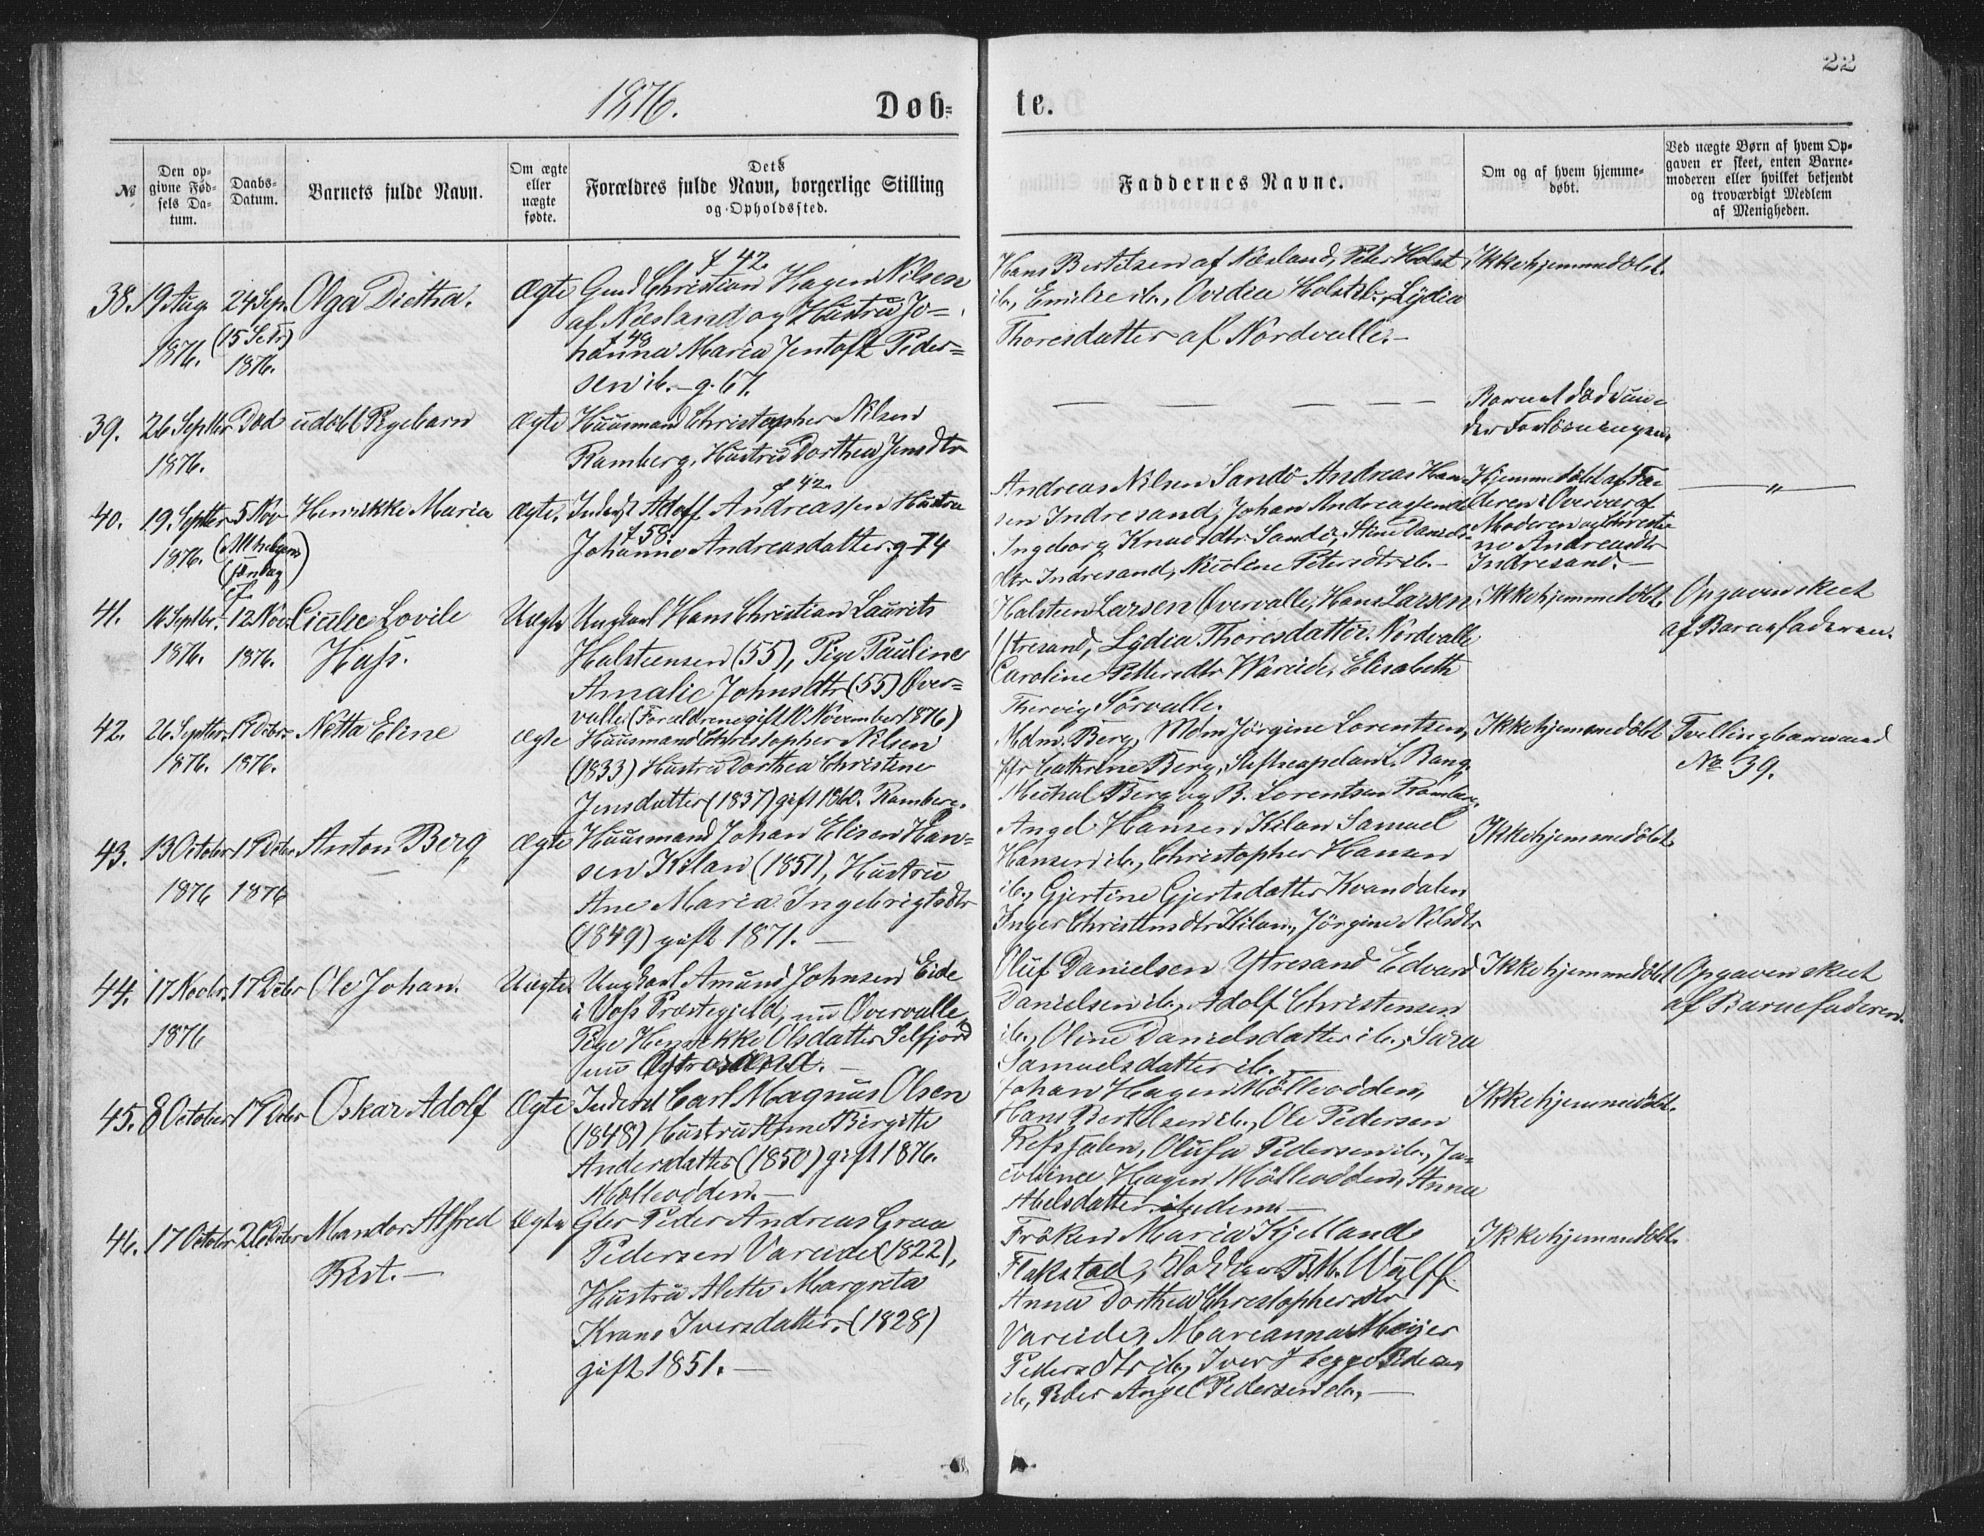 22
1876.
Døb-
te.
№
Den op-
givne Fød-
sels Da-
tum.
Daabs-
Datum.
Barnets fulde Navn.
Om ægte
eller
uægte
fødte.
Dets
Forældres fulde Navn, borgerlige Stilling
og Opholdssted.
Faddernes Navne.
Om og af hvem hjemme-
døbt.
Ved uægte Børn af hvem Op-
gaven er skeet, enten Barne-
moderen eller hvilket bekjendt
og troværdigt Medlem
af Menigheden.
38.
19 Aug.
1876.
24 Sep.
(15 S. e. Tr.)
1876.
Olga Diethea.
Ægte
f 42.
Gmd Christian Hagen Nilsen
af Næsland og Hustru Jo-
f 48
hanna Maria Jentoft Peder-
sen ib. – g. 67.
Hans Bertelsen af Næsland, Peter Holst
ib., Emilie ib., Ovidia Holst ib., Lydia
Thoresdatter af Nordvalle. –
Ikke hjemmedöbt.
39.
26 Septbr.
1876.
Död
udöbt Pigebarn
Ægte
Huusmand Christopher Nilsen
Ramberg, Hustru Dorthea Jensdtr
— — — — —
Barnet död un-
der Forlösningen.
40.
19. Septbr
1876.
5 Nov
(Allehelgens
söndag)
Henrikke Maria
Ægte.
f 42.
Inderst Adolf Andreassen Hustru
f 58.
Johanne Andreasdatter. g 74
Andreas Nilsen Sandö Andreas Han-
sen Indresand, Johan Andreassen ib
Ingeborg Knudsdtr Sandö, Stine Daniels-
dtr Indresand, Nicoline Petersdtr ib. –
Hjemmedöbt af Fa-
deren i Overvær af
Moderen og Christi-
ne Andreasdtr
Indresand. –
— „ —
41.
16 Septbr.
1876.
12 Nov.
1876.
Lovile
Hass.
Uægte
Ungkarl Hans Christian Laurits
Halsteensen (55), Pige Pauline
Amalie Johnsdtr (55) Över-
valle. (Forældrene gift 10 November 1876)
Halsteen Larsen Övervalle, Hans Larsen
Ytresand, Lydia Thoresdatter Nordvalle
Caroline Pettersdtr Vareide, Elisabeth
Thervig Sörvalle.
Ikke hjemmedöbt.
Opgaven skeet
af Barnefaderen.
42.
26. Septbr.
1876.
17 Debr.
1876.
Netta Eline
Ægte
Huusmand Christopher Nilsen
(1833) Hustru Dorthea Christine
Jensdatter (1837) gift 1860. Ramberg.
Mdm. Berg, Mdm Jörgine Lorentsen,
Jfr Cathrine Berg, Stiftscapelan L. Bang.
Michal Berg og B. Lorentsen Ramberg.
Ikke hjemmedöbt
Tvillingbarn med
No 39.
43.
13 Octobr
1876
17 Debr
1876
Anton Berg
Ægte
Huusmand Johan Elisen Han-
sen Kilan (1851), Hustru
Ane Maria Ingebrigtsdtr
(1849) gift 1871. –
Angel Hansen Kilan Samuel
Hansen ib., Christopher Hansen
ib., Gjertine Gjertsdatter Kvandalen
Inger Christensdtr Kilan, Jörgine Nilsdtr
Ikke hjemmedöbt.
44.
17 Novbr.
1876
17 Debr
Ole Johan.
Uægte
Ungkarl Amund Johnsen Eide
i Voss Præstegjeld, nu Övervalle
Pige Henrikke Olsdatter Selfjord
nu
Oluf Danielsen Ytresand Edvard
Danielsen ib., Adolf Christensen
ib., Oline Danielsdatter ib., Sara
Samuelsdatter ib.
Ikke hjemmedöbt
Opgaven skeet
af Barnefaderen.
45.
8 October
17 Debr
Oskar Adolf
Ægte
Inderst Carl Magnus Olsen
(1848) Hustru Anne Birgitte
Andersdatter (1850) gift 1876.
Mölleodden. –
Johan Hagen Mölleodden,
Hans Bertelsen ib., Ole Pedersen
Refsfalen, Olufa Pedersen ib., Ja-
cobine Hagen Mölleodden, Anna
Abelsdatter ibidem –
Ikke hjemmedöbt.
46.
17 Octobr
26 Debr
Mandor Alfred
Rist. –
Ægte
Gbr. Peder Andreas Graa
Pedersen Vareide (1822),
Hustru Alette Margreta
Krane Iversdatter. (1828)
gift 1851. –
Fröken Maria Kjelland
Flakstad, B.M. Wulff
Anna Dorthea Christophersdtr
Vareide, Marianna Meijer
Pedersdtr ib., Iver Hegge Pedersen
ib., Peder Angel Pedersen ib., –
Ikke hjemmedöbt.